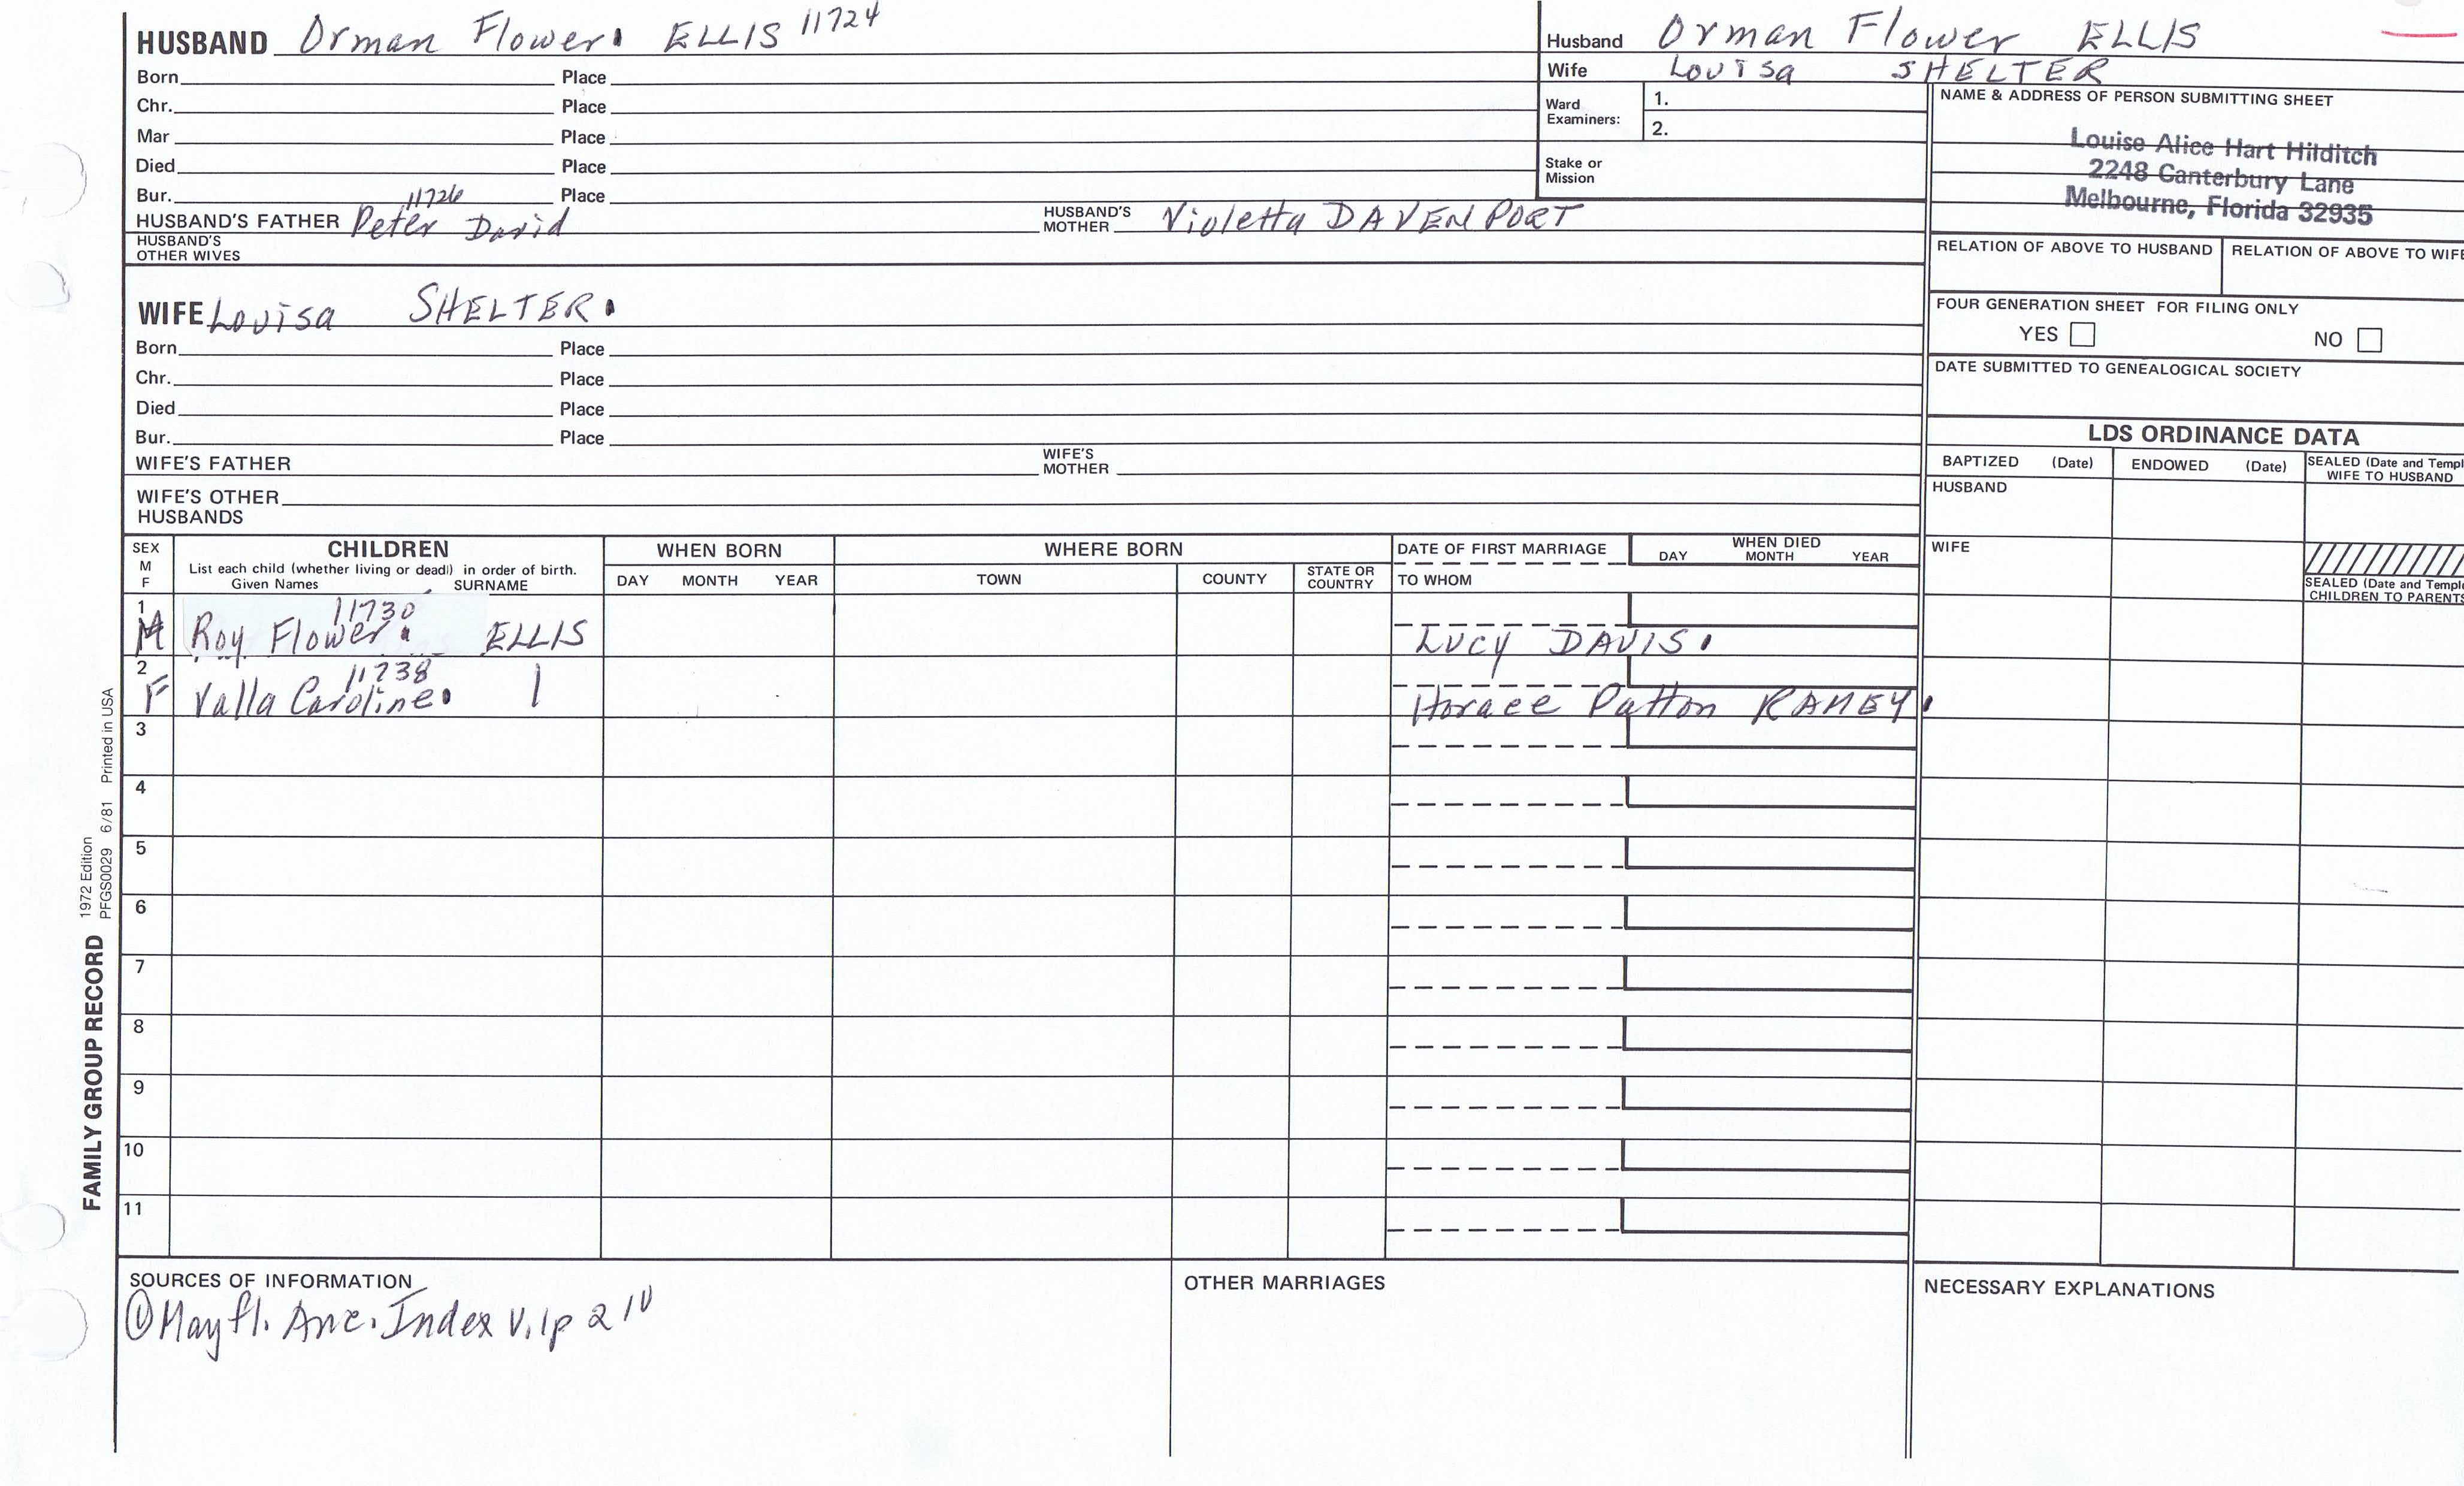 HUSBAND Orman Flower ELLIS 11724
Born Place
Chr. Place
Mar Place
Died Place
Bur. 11726 Place
HUSBAND'S FATHER Peter David HUSBAND'S MOTHER Violetta DAVENPORT
HUSBAND'S OTHER WIVES
Husband Orman Flower ELLIS
Wife Louisa SHELTER
Ward Examiners: 1.
2.
Stake or Mission
NAME & ADDRESS OF PERSON SUBMITTING SHEET
Louise Alice Hart Hilditch
2248 Canterbury Lane
Melbourne, Florida 32935
RELATION OF ABOVE TO HUSBAND RELATION OF ABOVE TO WIFE
FOUR GENERATION SHEET FOR FILING ONLY
YES NO
DATE SUBMITTED TO GENEALOGICAL SOCIETY
WIFE Louisa SHELTER
Born Place
Chr. Place
Died Place
Bur. Place
WIFE'S FATHER WIFE'S MOTHER
WIFE'S OTHER HUSBANDS
LDS ORDINANCE DATA
BAPTIZED (Date) ENDOWED (Date) SEALED (Date and Templ
WIFE TO HUSBAND
HUSBAND
WIFE
SEALED (Date and Templ
CHILDREN TO PARENTS
SEX M F
CHILDREN
List each child (whether living or dead) in order of birth.
Given Names SURNAME
WHEN BORN
DAY MONTH YEAR
WHERE BORN
TOWN COUNTY STATE OR COUNTRY
DATE OF FIRST MARRIAGE
TO WHOM
WHEN DIED
DAY MONTH YEAR
1 M Roy Flower 11730 ELLIS Lucy DAVIS
2 F Valla Caroline 11738 Horace Patton RAMEY
3
4
5
6
7
8
9
10
11
SOURCES OF INFORMATION
① Mayfl. Anc. Index V.1p
OTHER MARRIAGES
NECESSARY EXPLANATIONS
FAMILY GROUP RECORD
1972 Edition
PFGS0029 6/81 Printed in USA